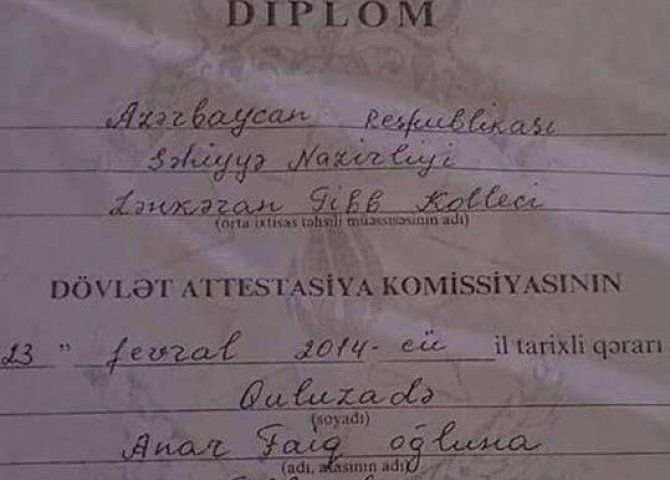 DİPLOM
Azərbaycan Respublikası
Səhiyyə Nazirliyi
Lənkəran Tibb Kolleci
(orta ixtisas təhsili müəssisəsinin adı)
DÖVLƏT ATTESTASİYA KOMİSSİYASININ
23 " fevral 2014-cü il tarixli qərarı
Quluzadə
(soyadı)
Anar Faiq oğluna
(adı, atasının adı)